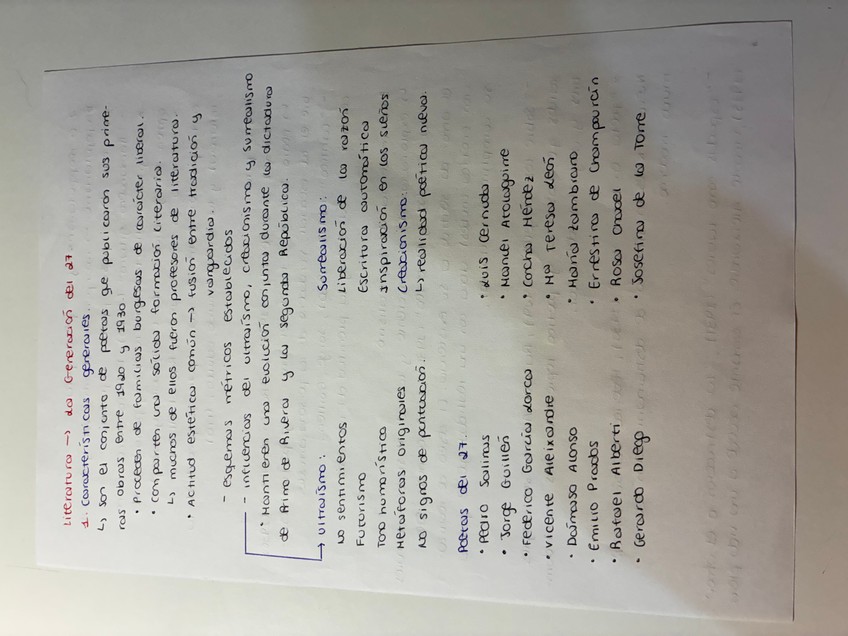 Literatura → La Generación del 27
1. Características generales.
↳ Son el conjunto de poetas que publicaron sus prime-
ras obras entre 1920 y 1930
• Proceden de familias burgesas de carácter liberal.
• Comparten una sólida formación literaria.
↳ muchos de ellos fueron profesores de literatura.
• Actitud estética común → fusión entre tradición y
vanguardia.
- esquemas métricos establecidos
- influencias del ultraísmo, creacionismo y surrealismo
• Mantienen una evolución conjunta durante la dictadura
de Primo de Rivera y la Segunda República.
→ Ultraísmo:
No sentimientos
Futurismo
Tono humorístico
Metáforas originales
No signos de puntuación.
Surrealismo:
Liberación de la razón
Escritura automática
Inspiración en los sueños
Creacionismo:
↳ realidad poética nueva.
Poetas del 27.
• Pedro Salinas
• Jorge Guillén
• Federico García Lorca
• Vicente Aleixandre
• Dámaso Alonso
• Emilio Prados
• Rafael Alberti
• Gerardo Diego
• Luis Cernuda
• Manuel Altolaguirre
• Concha Méndez
• Mª Teresa León
• María Zambrano
• Ernestina de Champourcín
• Rosa Chacel
• Josefina de la Torre